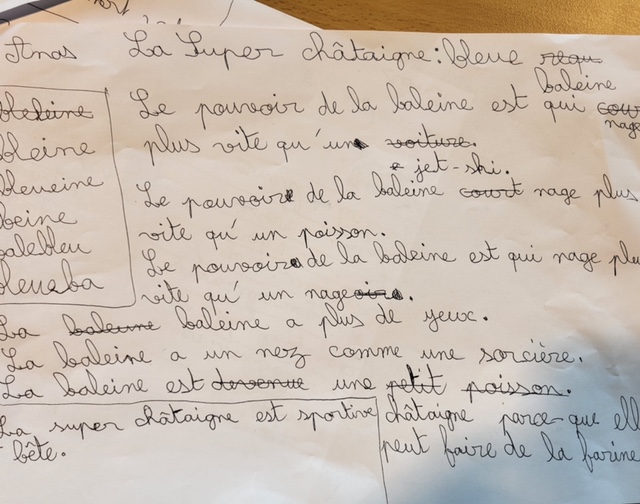 Anas La Super châtaigne : bleue reau
baleine
bleleine
bleine
bleueine
beine
balebleu
bleueba
Le pouvoir de la baleine est qui cour
nage
plus vite qu'un voiture.
jet-ski.
Le pouvoir de la baleine court nage plus
vite qu'un poisson.
Le pouvoir de la baleine est qui nage plu
vite qu'un nageoire.
La baleune baleine a plus de yeux.
La baleine a un nez comme une sorcière.
La baleine est devenue une petit poisson.
La super châtaigne est sportive
bête.
châtaigne parce-que ell
peut faire de la farine